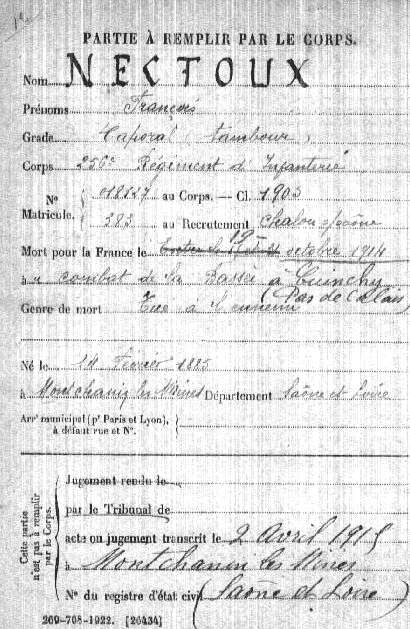 PARTIE À REMPLIR PAR LE CORPS.
Nom NECTOUX
Prénoms François
Grade Caporal (tambour)
Corps 256e Régiment d'Infanterie
No 018227 au Corps. — Cl. 1905
Matricule. 283 au Recrutement Chalon s/Saône
Mort pour la France le 19 octobre 1914
à u combat de La Bassée à Cuinchy
(Pas de Calais)
Genre de mort Tué à l'ennemi
Né le 24 Février 1885
à Montchanin les Mines Département Saône et Loire
Arrt municipal (pr Paris et Lyon),
à défaut rue et No.
Cette partie
n'est pas à remplir
par le Corps.
Jugement rendu le
par le Tribunal de
acte ou jugement transcrit le 2 Avril 1915
à Montchanin les Mines
No du registre d'état civil (Saône et Loire)
269-708-1922. [26434]